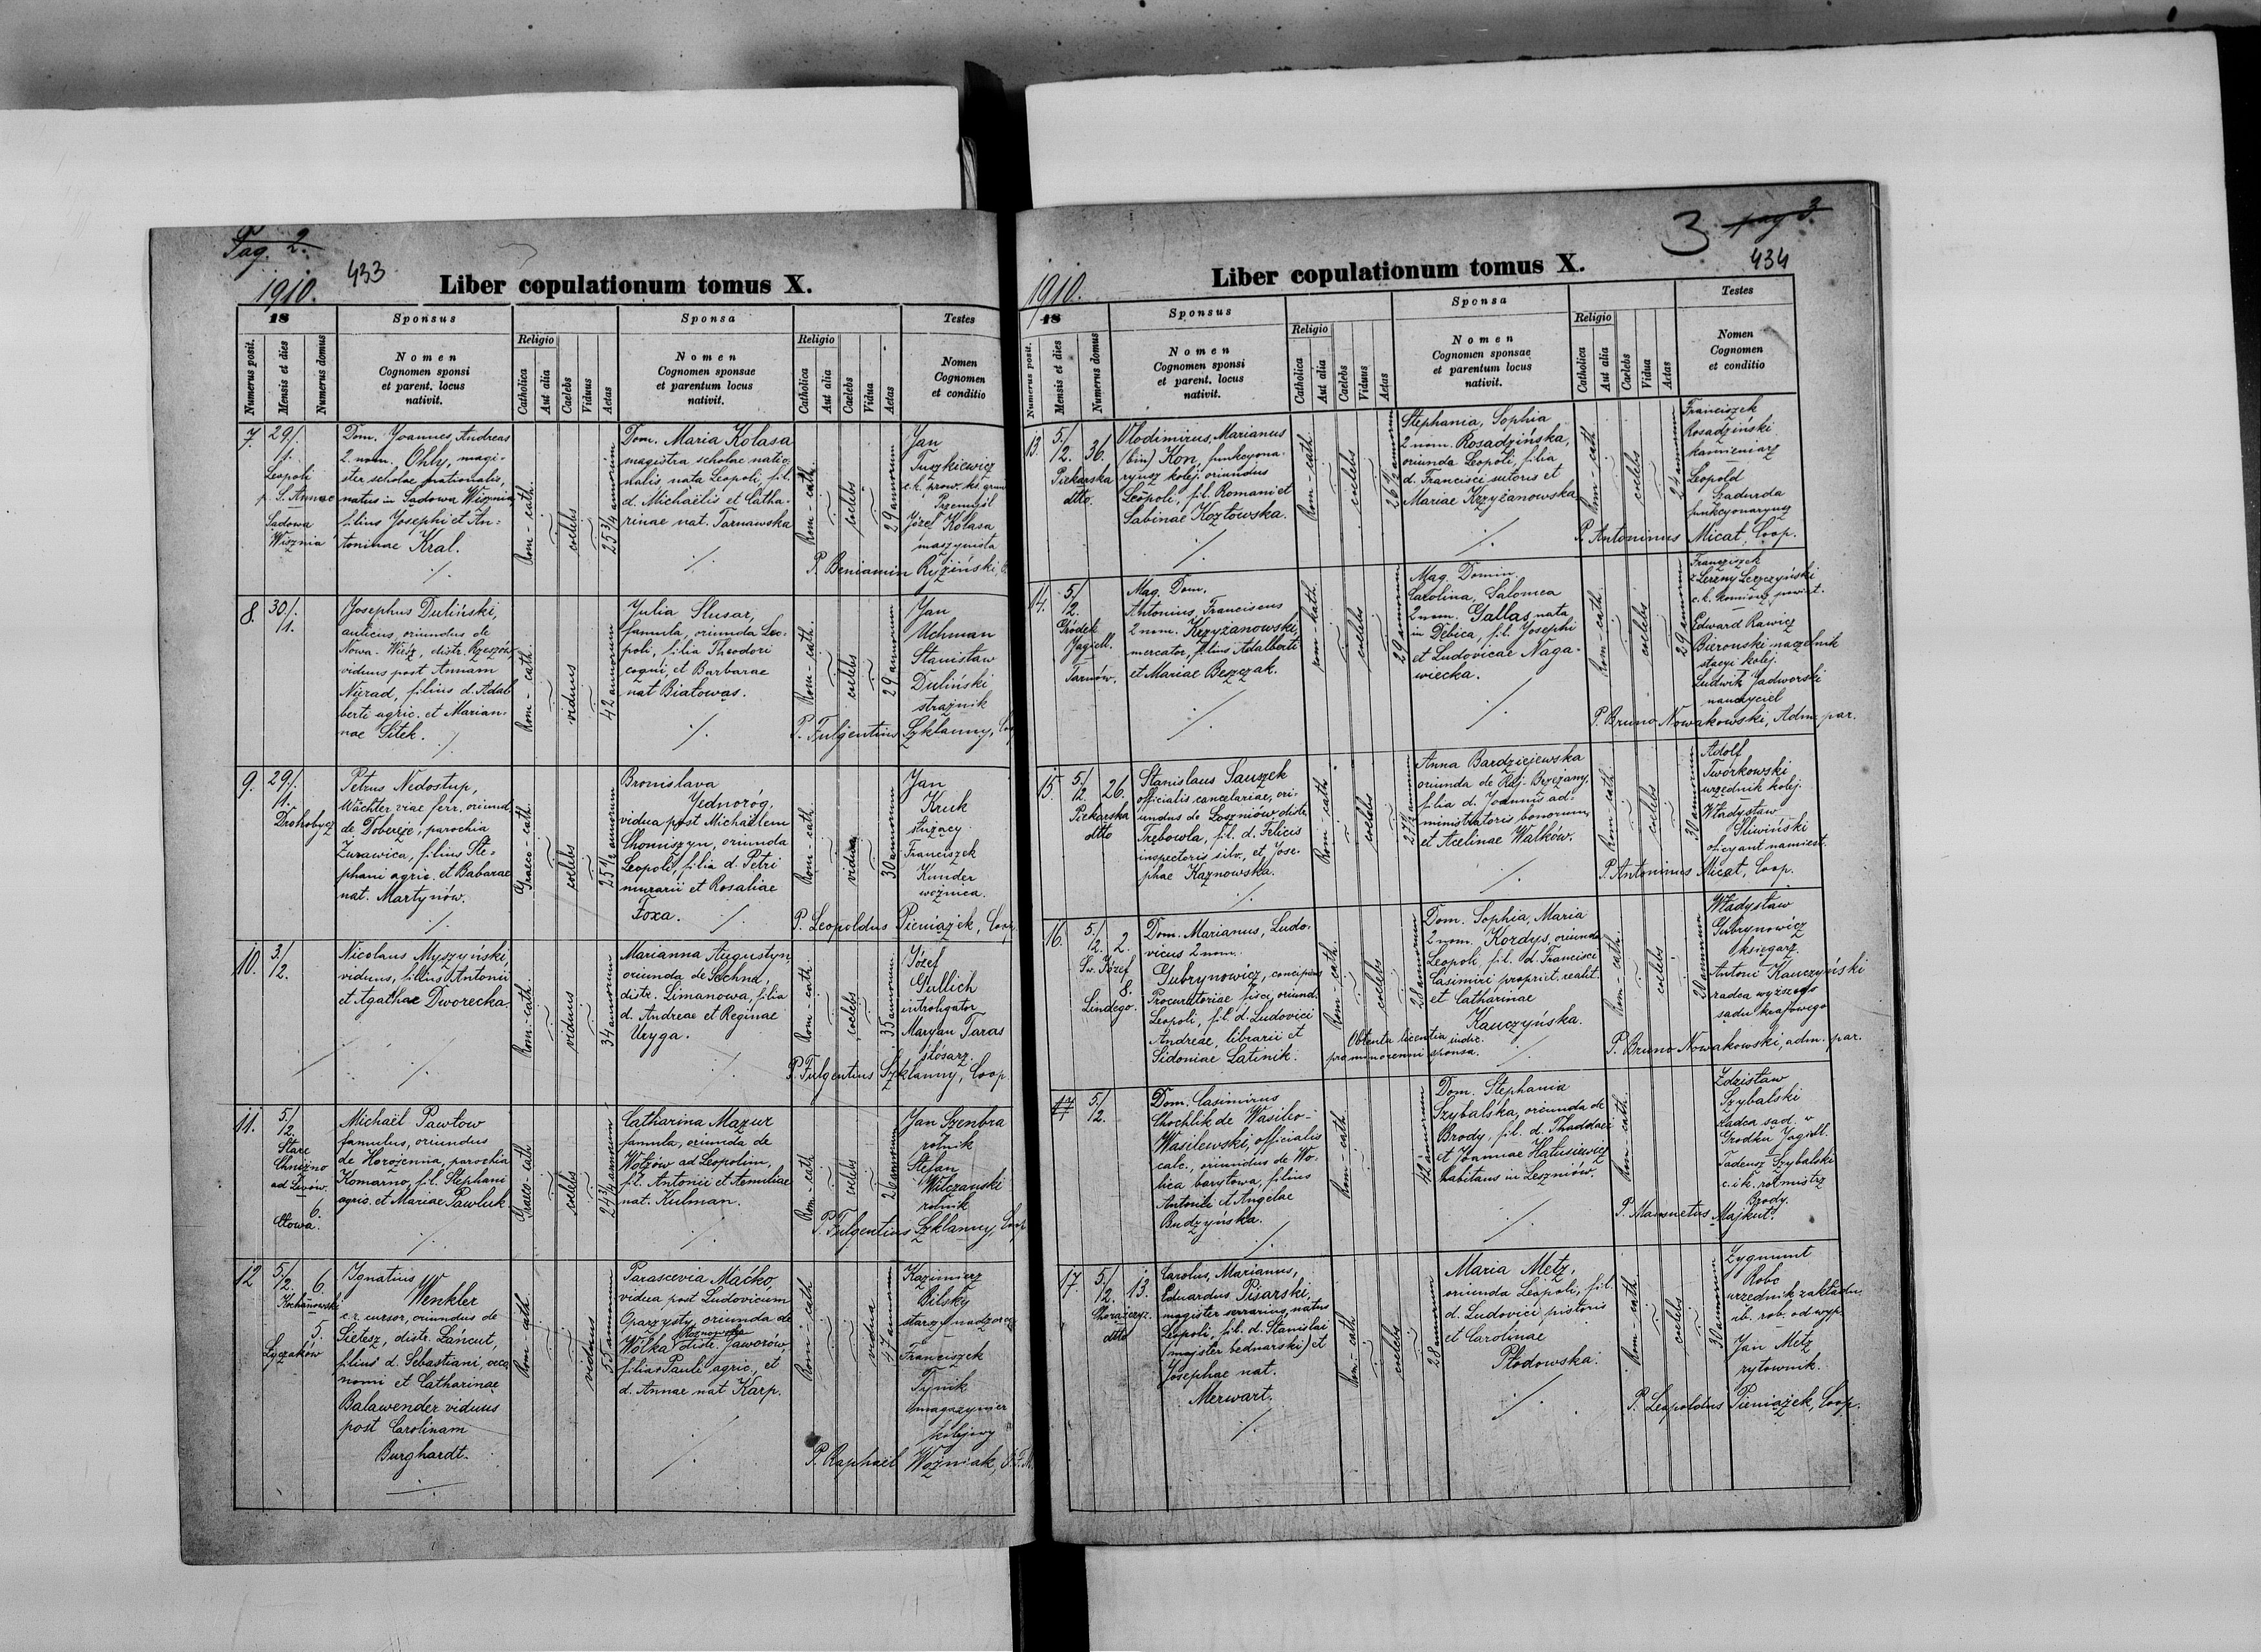 Pag. 2.
433
1910.
Liber copulationum tomus X.
18
Sponsus
Sponsa
Testes
Numerus posit.
Mensis et dies
Numerus domus
Nomen
Cognomen sponsi
et parent. locus
nativit.
Religio
Catholica
Aut alia
Caelebs
Viduus
Aetas
Nomen
Cognomen sponsae
et parentum locus
nativit.
Religio
Catholica
Aut alia
Caelebs
Vidua
Aetas
Nomen
Cognomen
et conditio
7.
29/1.
Leopoli
p. S. Annae
Sadowa
Wisznia
Dom. Joannes, Andreas
2. nom. Ohly, magi-
ster scholae nationalis,
natus in Sadowa Wisznia,
filius Josephi et An-
toninae Kral.
Rom-cath.
coelebs
25 3/4 annorum
Dom. Maria Kolasa
magistra scholae natio-
nalis nata Leopoli, fil.
d. Michaëlis et Catha-
rinae nat. Tarnawska
Rom-cath.
coelebs
29 annorum
Jan
Tuszkiewicz
c.k. prow. ks. grun
Przemyśl
Józef Kolasa
maszynista
P. Beniamin Ryziński
8.
30/1.
Josephus Duliński,
aulicus, oriundus de
Nowa-Wieś, distr. Rzeszów,
viduus post Annam
Nierad, filius d. Adal
berti agric. et Marian-
nae Sitek.
Rom-cath.
viduus
42 annorum
Julia Slusar,
famula, oriunda Leo-
poli, filia Theodori
coqui, et Barbarae
nat Białowąs.
Rom-cath.
coelebs
29 annorum
Jan
Uchman
Stanisław
Duliński
strażnik
P. Fulgentius Szklanny, Coop
9.
29/1.
Drohobycz
Petrus Nedostup,
Wächter viae ferr. oriund.
de Dobereże, parochia
Żurawica, filius Ste-
phani agric. et Babarae
nat. Martynów.
Graeco-cath.
coelebs
25 1/2 annorum
Bronislava
Jednoróg,
vidua post Michaëlem
Chomuszyn, oriunda
Leopoli, filia d. Petri
murarii et Rosaliae
Foxa.
Rom-cath.
vidua
30 annorum
Jan
Kruk
służący
Franciszek
Kunder
woźnica.
P. Leopoldus Pieniążek, Coop.
10.
3/2.
Nicolaus Myszyński,
viduus, filius Antonii
et Agathae Dworecka.
Rom-cath.
viduus
34 annorum
Marianna Augustyn
oriunda de Sechna,
distr. Limanowa, filia
d. Andreae et Reginae
Uryga.
Rom-cath.
coelebs
35 annorum
Józef
Gullich
introligator
Maryan Taras
ślósarz.
P. Fulgentius Szklanny, Coop.
11.
5/2.
Stare
ad Lwów.
6.
Michaël Pawłow
famulus, oriundus
de Horożenna, parochia
Komarno, fil. Stephani
agric. et Mariae Pawluk.
Graeco-cath
coelebs
24 3/4 annorum
Catharina Mazur
famula, oriunda de
Wołków ad Leopolim,
fil. Antonii et Aemiliae
nat. Kulman.
Rom-cath
coelebs
26 annorum
Jan Szenbra
rolnik
Stefan
Wilczański
rolnik
P. Fulgentius Szklanny, Coop
12
5/2.
6.
Kochanowski
5.
Łyczaków
Ignatius
Wenkler
c.r. cursor, oriundus de
Sietesz, distr. Łańcut,
filius d. Sebastiani, oeco
nomi et Catharinae
Balawender viduus
post Carolinam
Burghardt.
Rom cath.
viduus
55 annorum
Parascevia Maćko,
vidua post Ludovicum
Oparzysty, oriunda de
Wólka distr. Jaworów,
filia Pauli agric, et
d. Annae nat Karp.
Rom-cath
vidua
47 annorum
Kazimierz
Bilsky
starszy nadzorca
Franciszek
Tynik
magazynier
kolejowy
P. Raphaël Woźniak,
3 pag 3.
434
1910.
Liber copulationum tomus X.
18
Sponsus
Sponsa
Testes
Numerus posit.
Mensis et dies
Numerus domus
Nomen
Cognomen sponsi
et parent. locus
nativit.
Religio
Catholica
Aut alia
Caelebs
Viduus
Aetas
Nomen
Cognomen sponsae
et parentum locus
nativit.
Religio
Catholica
Aut alia
Caelebs
Vidua
Aetas
Nomen
Cognomen
et conditio
13.
5/2.
36.
Piekarska
dtto.
Vlodimirus, Marianus
(bin) Kon, funkcyona-
ryusz kolej. oriundus
Leopoli, fil. Romani et
Sabinae Kozłowska.
Rom-cath.
coelebs
26 1/2 annorum
Stephania, Sophia
2 nom. Rosadzińska,
oriunda Leopoli, filia
d. Francisci sutoris et
Mariae Krzyżanowska
Rom-cath
coelebs
24 annorum
Franciszek
Rosadziński
kamieniarz
Leopold
Gadurda
funkcyonaryusz
P. Antoninus Micat, Coop.
14.
5/2.
Gródek
Jagiell.
Tarnów.
Mag. Dom.
Antonius, Franciscus
2 nom. Krzyżanowski,
mercator, filius Adalberti
et Mariae Beszczak.
rom-kath.
coelebs
29 annorum
Mag. Domin.
Carolina, Salomea
2 nom. Gallas, nata
in Dębica, fil. Josephi
et Ludovicae Naga-
wiecka.
Rom-cath.
coelebs
29 annorum
Franciszek
z Lerzny Lerzczyński
c.k. komisarz powiat.
Edward Rawicz
Bieronski naczelnik
stacyi kolej.
Ludwik Jadworski
nauczyciel
P. Bruno Nowakowski, Adm. par.
15.
5/2.
26.
Piekarska
dtto
Stanislaus Sauszek
officialis cancelariae, ori-
undus de Łoszniów, distr.
Trębowla, fil. d. Felicis
inspectoris silv., et Jose-
phae Kaznowska.
Rom cath
coelebs
27 1/2 annorum
Anna Bardziejewska
oriunda de Raj. Brzeżany,
filia d. Joannis ad-
ministratoris bonorum,
et Acelinae Walków.
Rom-cath.
coelebs
30 annorum
Adolf
Twórkowski
urzednik kolej.
Władysław
Śliwiński
oficyant namiest.
P. Antoninus Micat, Coop.
16.
5/2.
2.
Św. Józef
8.
Lindego.
Dom. Marianus, Ludo-
vicus 2 nom.
Gubrynowicz, concipiens
Procuratoriae fisci, oriund.
Leopoli, fil. d. Ludovici
Andreae, librarii et
Sidoniae Latinik.
Rom-cath.
coelebs
28 annorum
Obtenta licentia iudic.
pro minorenni sponsa.
Dom. Sophia, Maria
2 nom. Kordys, oriunda
Leopoli, fil. d. Francisci
Casimiri propriet. realit.
et Catharinae
Kauczyńska.
Rom-cath.
coelebs
20 annorum
Władysław
Gubrynowicz
księgarz
Antoni Kauczyński
radca wyższego
sądu krajowego
P. Bruno Nowakowski, adm. par.
17
5/2.
Dom. Casimirus
Chochlik de Wasilco-
Wasilewski, officialis
calc., oriundus de Wo-
lica barytowa, filius
Antonii et Angelae
Budzyńska.
Rom-cath.
42 annorum
Dom. Stephania
Szybalska, oriunda de
Brody, fil. d. Thaddaei
et Joannae Hatusiewicz
habitans in Leszniów.
Rom-cath.
Zdzisław
Szybalski
radca sąd. w
Gródku Jagiell.
Tadeusz Szybalski
c. i k. rotmistrz
Brody.
P. Mansuetus Majkut.
17.
5/2.
13.
dtto
Carolus, Marianus,
Eduardus Pisarski,
magister serrarius, natus
Leopoli, fil. d. Stanislai
(majster bednarski) et
Josephae nat.
Merwart.
Rom-cath
coelebs
28 annorum
Maria Metz,
oriunda Leopoli, fil.
d. Ludovici pistoris
et Carolinae
Płodowska.
Rom-cath
coelebs
30 annorum
Zygmunt
Robo
urzednik zakładu
ub. rob. od wyp.
Jan Metz
rytownik.
P. Leopoldus Pieniążek, Coop.